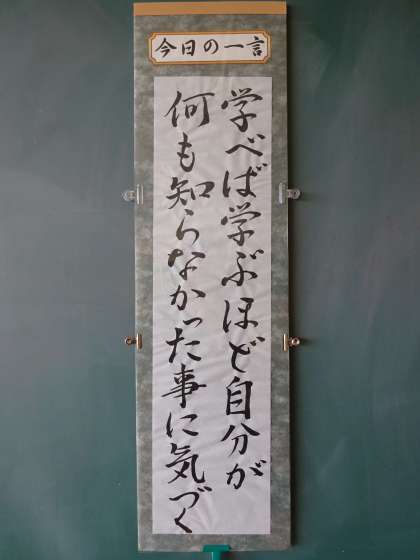 今日の一言
学べば学ぶほど自分が
何も知らなかった事に気づく